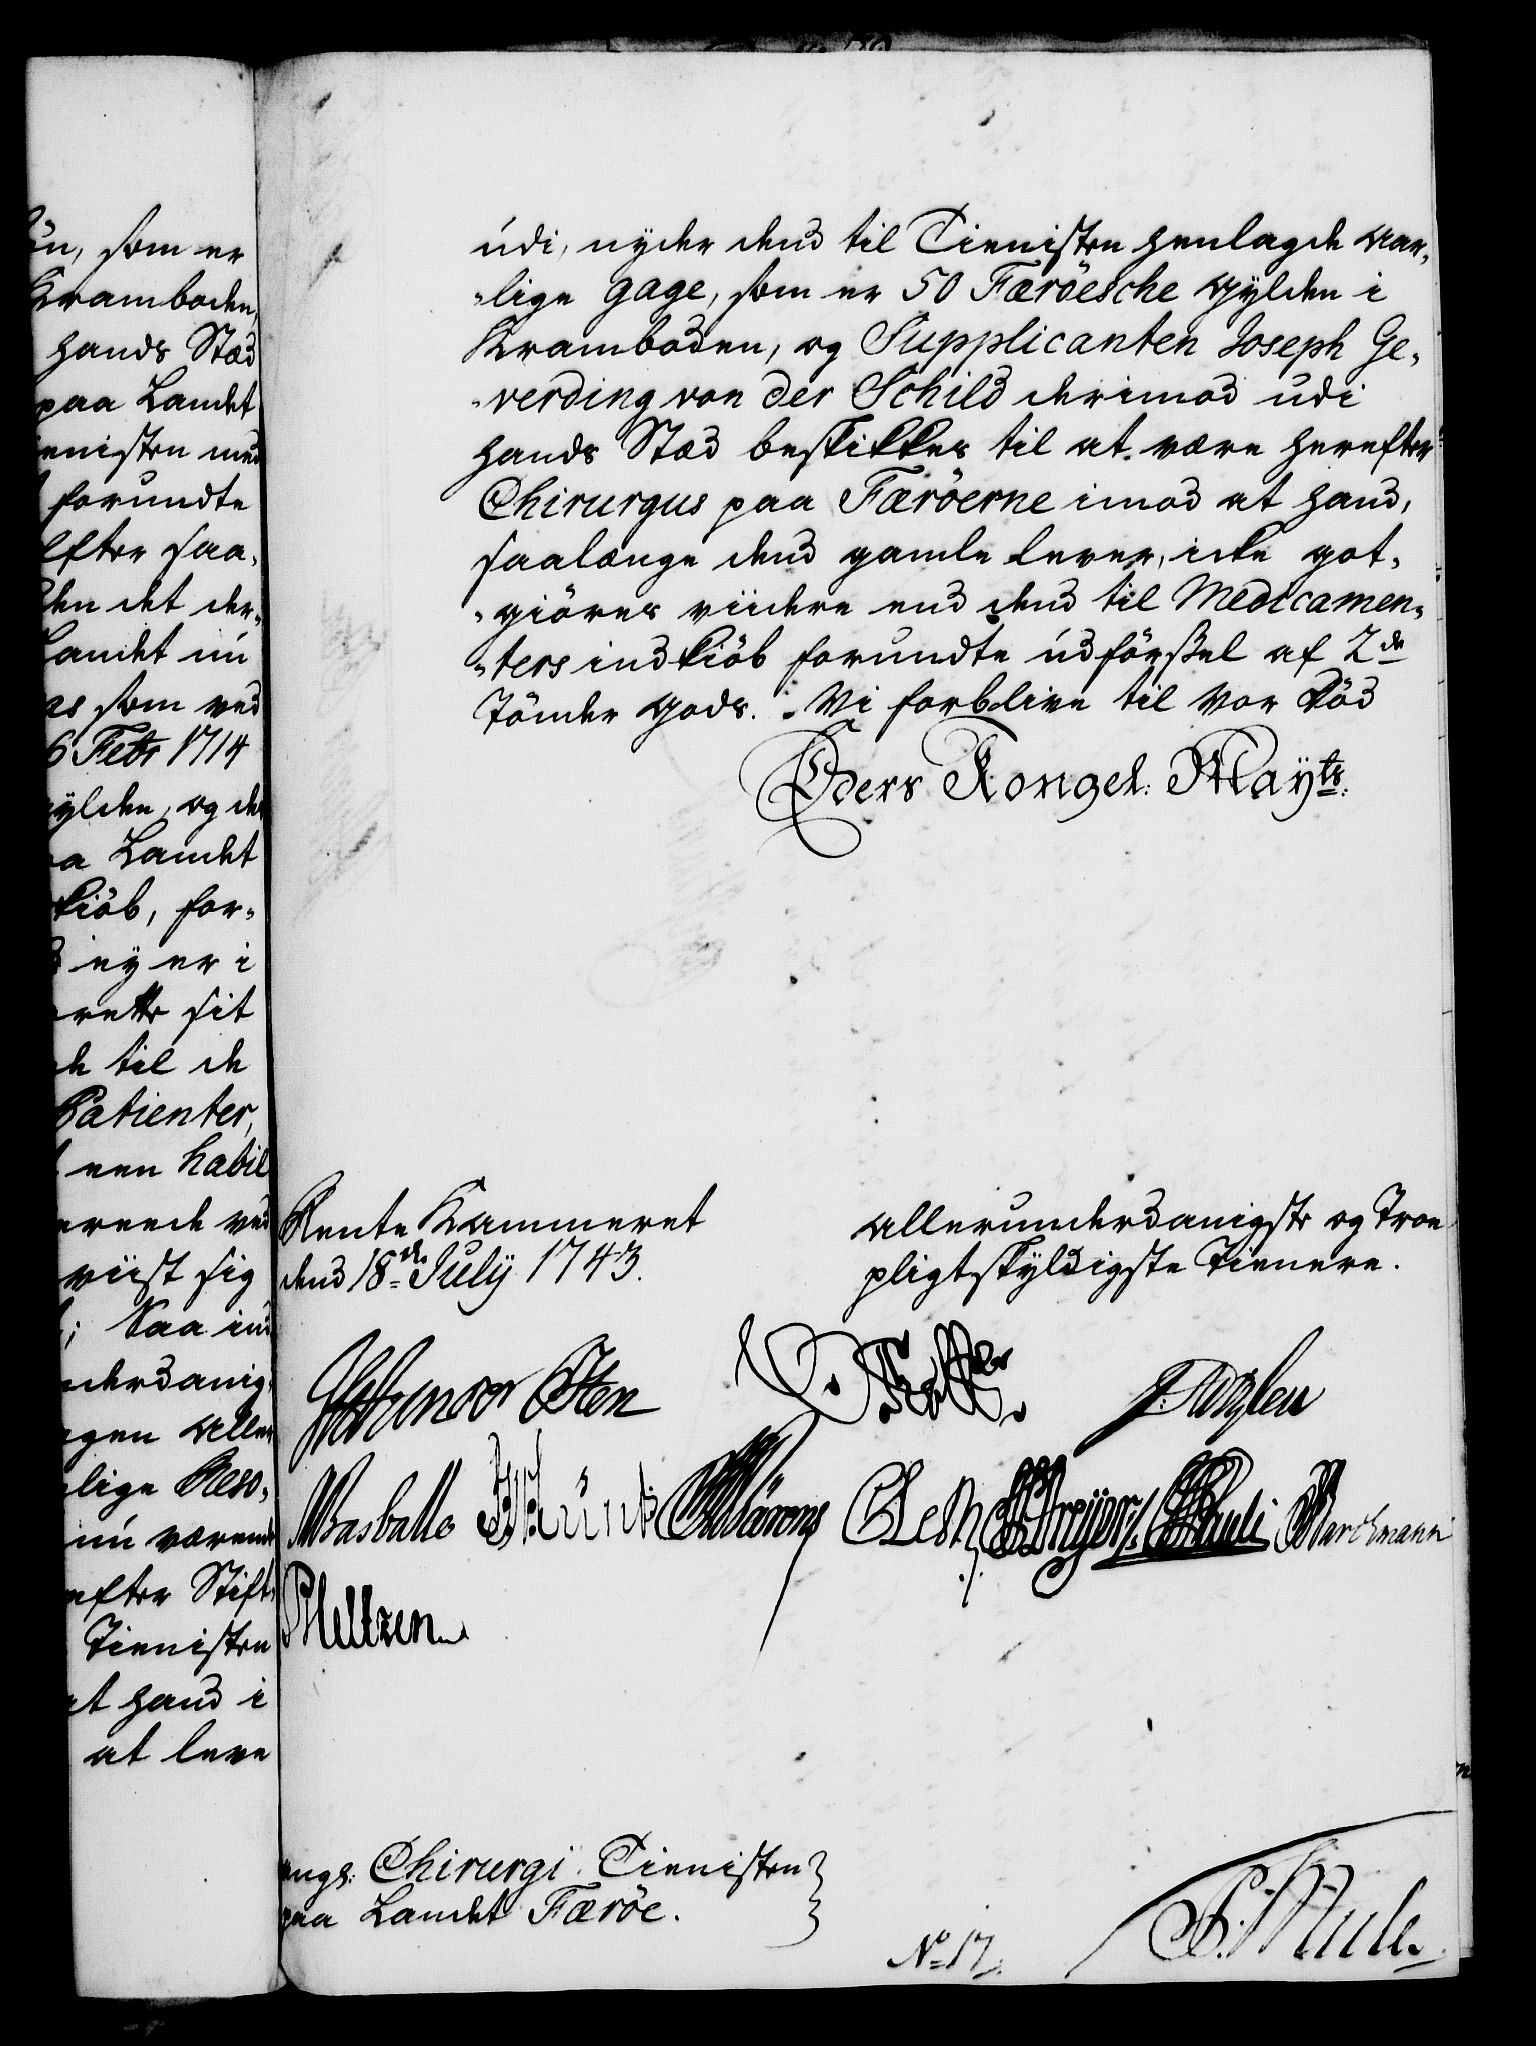 ön, som er
Kramboden,
hands Stæd
paa Landet
ienisten med
forundte
efter saa-
den det der-
Landet nu
as som ved
6 Febr 1714
gylden, og de
aa Landet
kiöb, for-
ey er i
rette sit
de til de
Patienter,
een habil
ereede ved
viist sig
; Saa ind
nderdanig-
gen aller
lige Reso-
nu værende
efter Stift-
Tienisten
at hand i
at leve
udi, nyder dend til Tienisten henlagde aar-
-lige gage, som er 50 Færöesche gylden i
Kramboden, og Supplicanten Joseph Ge-
-verding von der Schild derimod udi
hands Stæd beskikkes til at være herefter
Chirurgus paa Færöerne imod at hand,
saalænge dend gamle lever, icke got-
-giöres viidere end dend til Medicamen-
-ters indkiöb forundte udförßel af 2de
Tönder gods. Vi forblive til vor död
Eders Kongel: Mayts:
Rente Kammeret
dend 18de July 1743.
allerunderdanigste og Troe
pligtskyldigste Tienere.
Osten
Basballe
Meltzen
angl: Chirurgi Tienisten
paa Landet Færöe.
No 17.